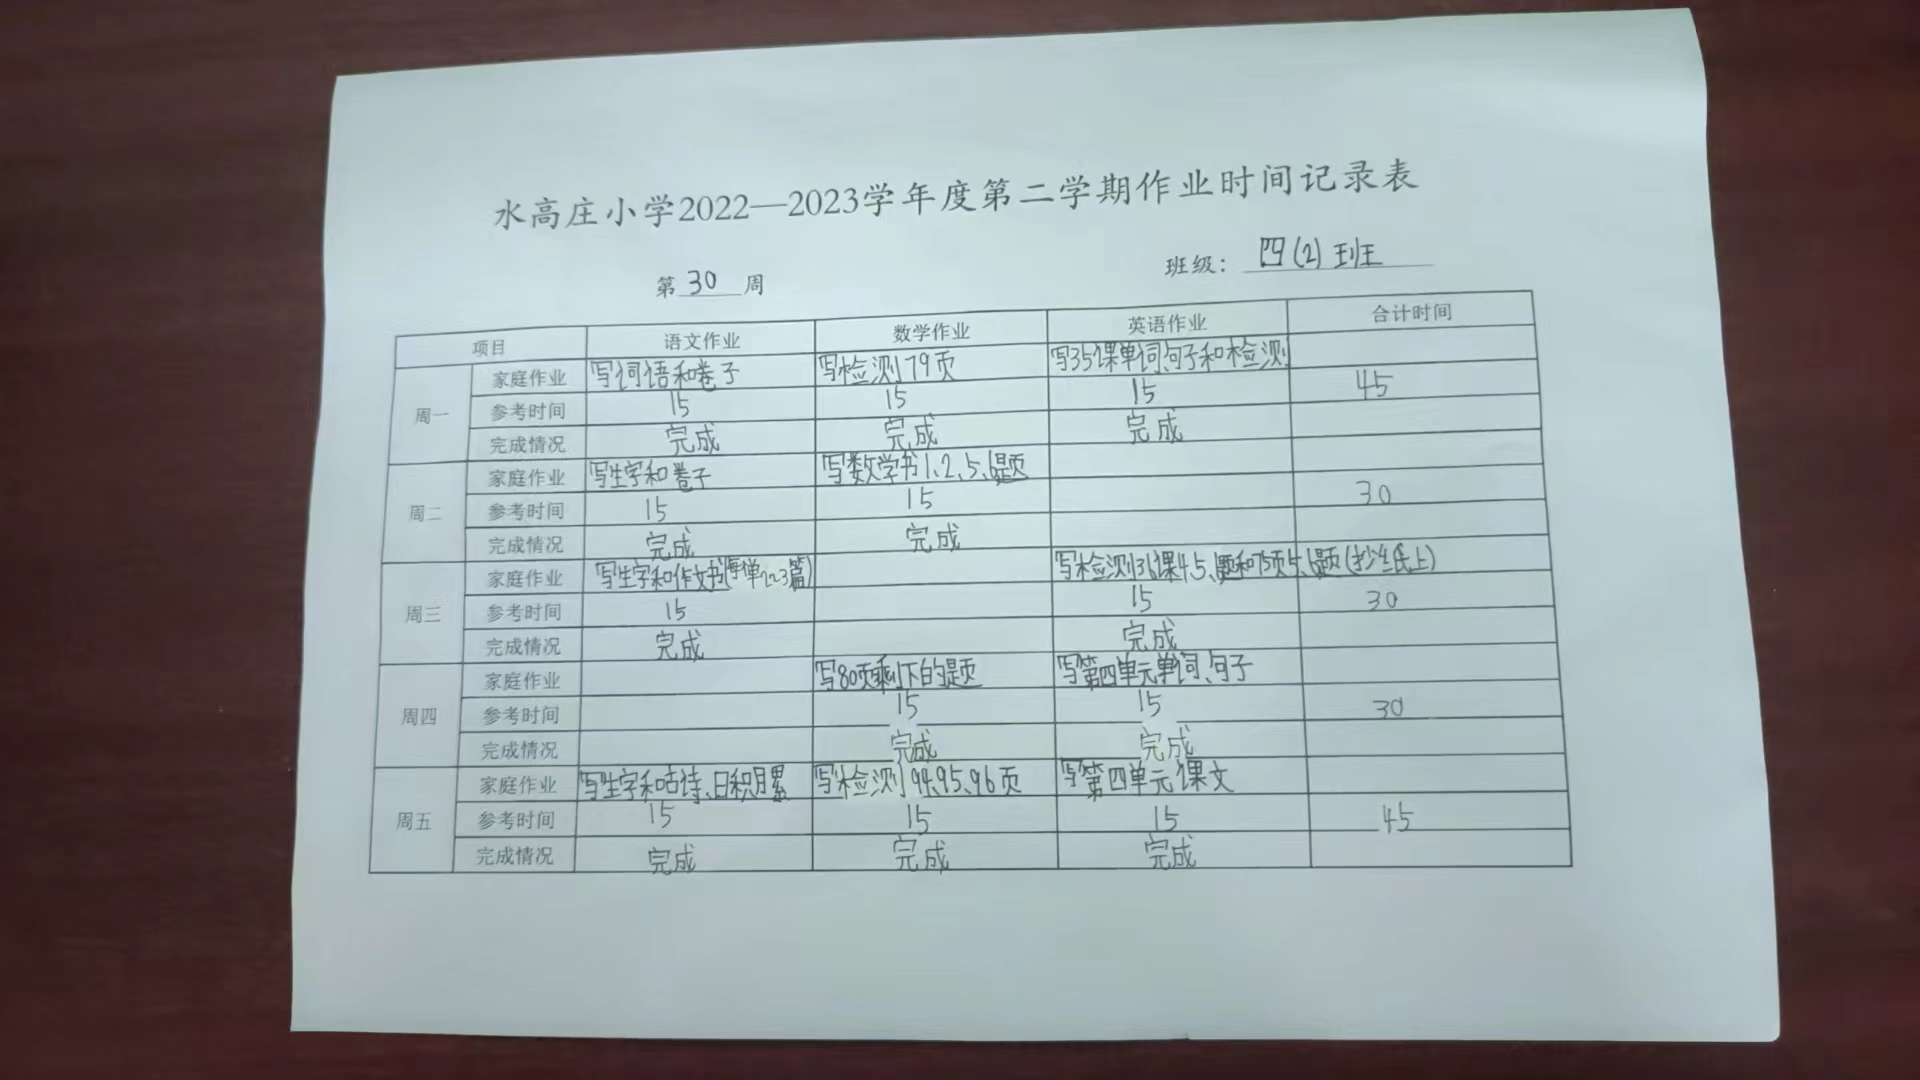 水高庄小学2022—2023学年度第二学期作业时间记录表
第 30 周 班级： 四(2)班
项目 语文作业 数学作业 英语作业 合计时间
周一 家庭作业 写词语和卷子 写检测79页 写35课单词、句子和检测
参考时间 15 15 15 45
完成情况 完成 完成 完成
周二 家庭作业 写生字和卷子 写数学书1、2、5、6题
参考时间 15 15 30
完成情况 完成 完成
周三 家庭作业 写生字和作文书 写检测36课4、5、题和75页5、6题(抄纸上)
参考时间 15 15 30
完成情况 完成 完成
周四 家庭作业 写80页剩下的题 写第四单元单词、句子
参考时间 15 15 30
完成情况 完成 完成
周五 家庭作业 写生字和古诗、日积月累 写检测94、95、96页 写第四单元课文
参考时间 15 15 15 45
完成情况 完成 完成 完成